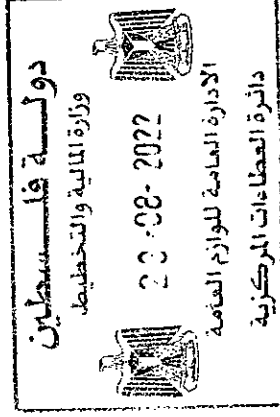 دولة فلسطين
وزارة المالية والتخطيط
20-08-2022
الادارة العامة للوازم العامة
دائرة العطاءات المركزية